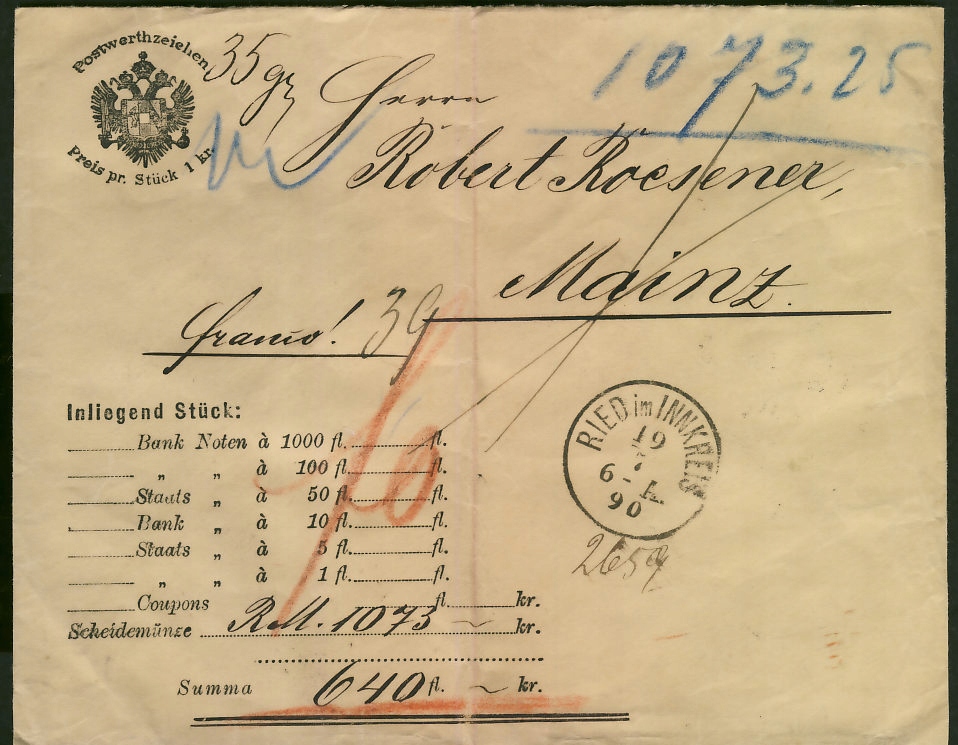 Postwerthzeichen
Preis pr. Stück 1 kr.
35 gr
1073.25
Herrn
Robert Roesener,
Mainz.
franco! 39
Inliegend Stück:
Bank Noten à 1000 fl. fl.
„ „ à 100 fl. fl.
Staats „ à 50 fl. fl.
Bank „ à 10 fl. fl.
Staats „ à 5 fl. fl.
„ „ à 1 fl. fl.
Coupons fl. kr.
Scheidemünze R.M. 1073 ~ kr.
Summa 640 fl. ~ kr.
RIED im INNKREIS
19
7
6 - A
90